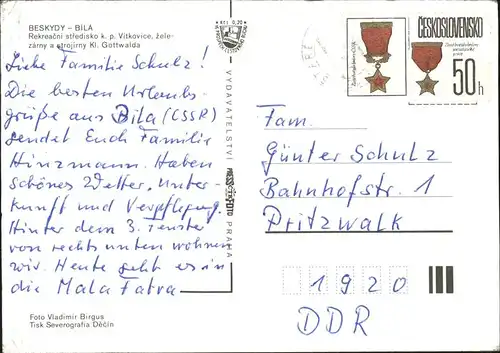 BESKYDY – BÍLÁ
Rekreační středisko k. p. Vítkovice, žele-
zárny a strojírny Kl. Gottwalda
Liebe Familie Schulz!
Die besten Urlaubs-
grüße aus Bila (CSSR)
sendet Euch Familie
Hinzmann. Haben
schönes Wetter, Unter-
kunft und Verpflegung.
Hinter dem 3. Fenster
von rechts unten wohnen
wir. Heute geht es in
die Mala Fatra
Foto Vladimír Birgus
Tisk Severografia Děčín
VYDAVATELSTVÍ PRESSFOTO PRAHA
ČESKOSLOVENSKO
50h
Fam.
Günter Schulz
Bahnhofstr. 1
Pritzwalk
1920
DDR